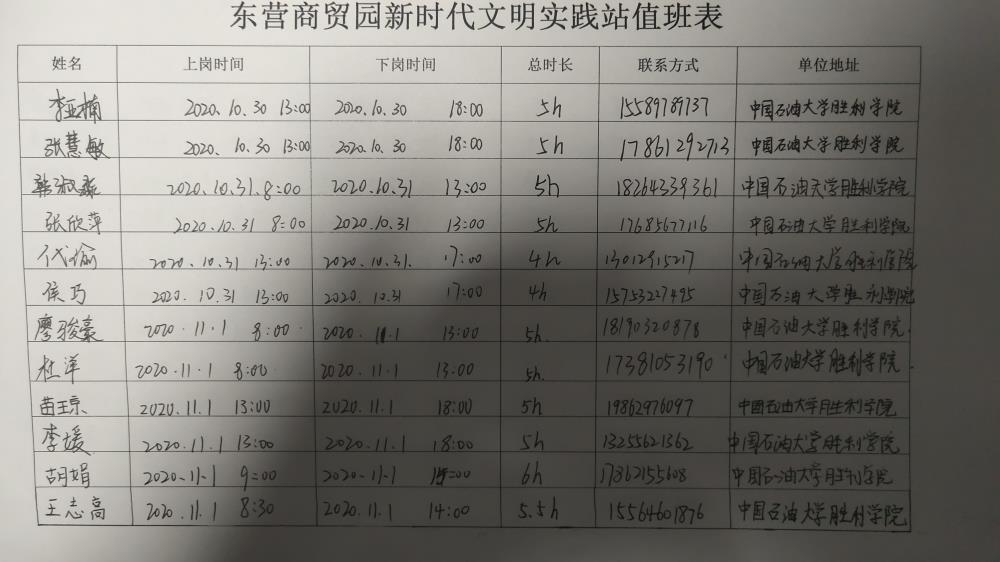 东营商贸园新时代文明实践站值班表
姓名 上岗时间 下岗时间 总时长 联系方式 单位地址
李亚楠 2020.10.30 13:00 2020.10.30 18:00 5h 15589789737 中国石油大学胜利学院
张慧敏 2020.10.30 13:00 2020.10.30 18:00 5h 17861292713 中国石油大学胜利学院
韩淑 2020.10.31.8:00 2020.10.31 13:00 5h 18264339361 中国石油大学胜利学院
张欣萍 2020.10.31 8:00 2020.10.31 13:00 5h 17685677116 中国石油大学胜利学院
代偷 2020.10.31 13:00 2020.10.31. 17:00 4h 13012915217 中国石油大学胜利学院
侯巧 2020.10.31 13:00 2020.10.31 17:00 4h 15753227495 中国石油大学胜利学院
廖骏豪 2020.11.1 8:00 2020.11.1 13:00 5h. 18190320878 中国石油大学胜利学院.
杜洋 2020.11.1 8:00 2020.11.1 13:00 5h. 17381053190 中国石油大学胜利学院.
苗琼 2020.11.1 13:00 2020.11.1 18:00 5h 19862976097 中国石油大学胜利学院
李媛 2020.11.1 13:00 2020.11.1 18:00 5h 13255621362 中国石油大学胜利学院
胡娟 2020.11.1 9:00 2020.11.1 6h 17362155608 中国石油大学胜利学院
王志高 2020.11.1 8:30 2020.11.1 14:00 5.5h 15564601876 中国石油大学胜利学院